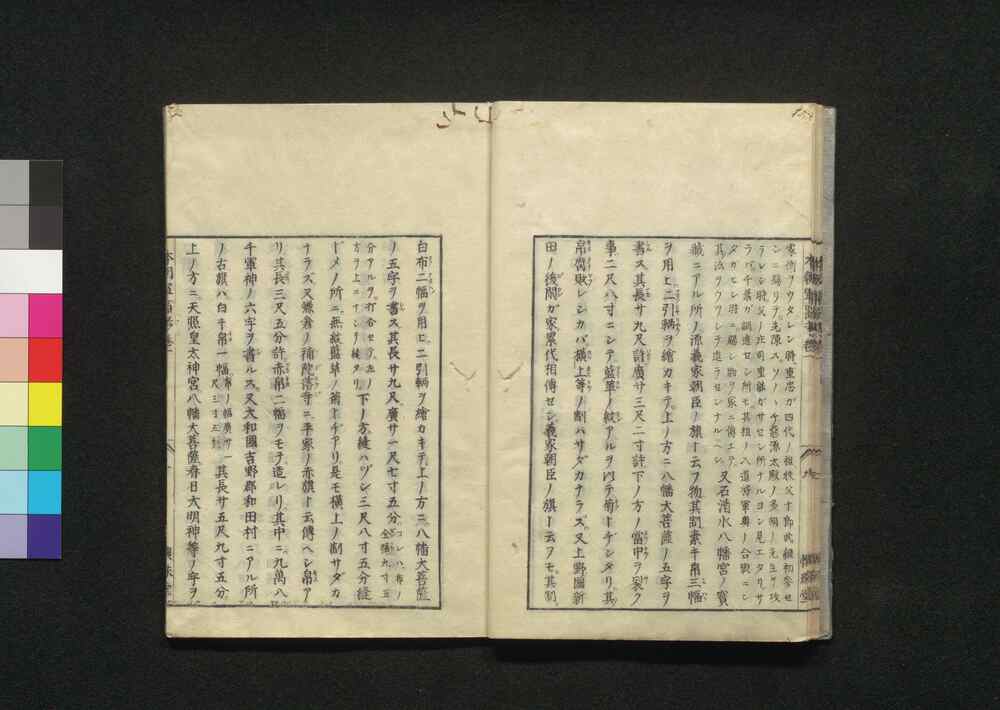 家衡ヲウタレシ時重忠ガ四代ノ祖秩父十郎武綱初參セ
シニ賜リテ先陳スソノヽチ惡源太殿ノ
ラレシ時父ノ庄司重能ガサセシ所ナルヨシ見エタリサ
ラバ千葉ガ調進セシ所モ其祖ノ入道將軍ノ合戰ニシ
タガヒシ日ニ賜シ物ヲ家ニ傳エテ
其法ヲウツシテ造ラセシナルベシ又石清水八幡宮ノ寶
藏ニアル所ノ源義家朝臣ノ旗ト云フ物其制素キ帛三幅
ヲ用ヒ二引輌ヲ繪カキテ上ノ方ニ八幡大菩薩ノ五字ヲ
書ス其長サ九尺許廣サ三尺二寸許下ノ方ノ當中ヲ裂ク
事二尺八寸ニシテ藍革ノ紋アルヲ以テ菊トヂシタリ其
帛腐敗レシカバ横上等ノ制ハサダカナラズ又上野國新
田ノ後閑ガ家累代相傳セシ義家朝臣ノ旗ト云フモ其制
白布二幅ヲ用ヒ二引輌ヲ繪カキテ上ノ方ニ八幡大菩薩
ノ五字ヲ書ス其長サ九尺廣サ一尺七寸五分コレハ布ノ全幅九寸五
分アルヲ打合セテ左ノ方ヲ上ニナシテ縫タリ下ノ方縫ハヅシ三尺八寸五分縫
ドメノ所ニ無紋藍革ノ菊トヂアリ是モ横上ノ制サダカ
ナラズ又鎌倉ノ補陀落寺ニ平家ノ赤旗ト云傳ヘシ帛ア
リ其長三尺五分許赤帛二幅ヲモテ造レリ其中ニ九萬八
千軍神ノ六字ヲ書ルス又大和國吉野郡和田村ニアル所
ノ古旗ハ白キ帛一幅帛ノ幅廣サ一尺三寸五分其長サ五尺九寸五分
上ノ方ニ天照皇太神宮八幡大菩薩春日大明神等ノ字ヲ